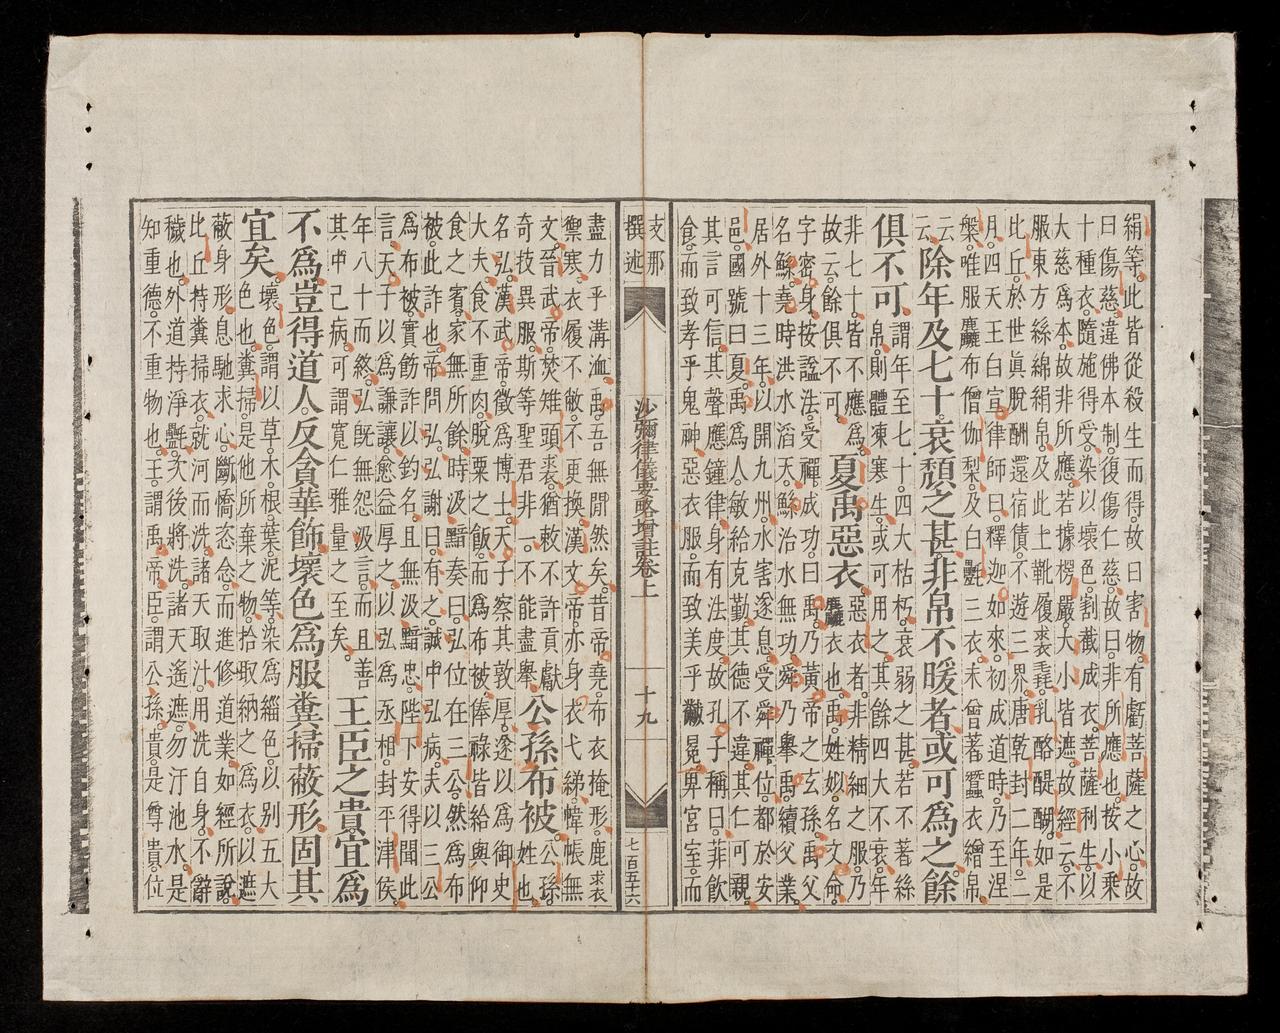 絹等。此皆從殺生而得。故曰害物。有虧菩薩之心。故
曰傷慈。違佛本制。復傷仁慈。故曰非所應也。按小乘
十種衣。隨施得受。染以壞色。割截成衣。菩薩利生。以
大慈爲本。故非所應。若據楞嚴。大小皆遮。故經云。不
服東方絲綿絹帛。及此土靴履裘毳。乳酪醍醐。如是
比丘。於世眞脫。酬還宿債。不遊三界。唐乾封二年。二
月。四天王白宣律師曰。釋迦如來。初成道時。乃至涅
槃。唯服麤布僧伽梨。及白氎三衣。未曾著蠶衣繒帛。
云云。除年及七十。衰頹之甚。非帛不暖者。或可爲之。餘
俱不可。
謂年至七十。四大枯朽。衰弱之甚。若不著絲
帛。則體凍寒生。或可用之。其餘四大不衰。年
非七十。皆不應爲。
故云。餘俱不可。
夏禹惡衣。
惡衣者。非精細之服。乃
麤醜衣也。禹。姓姒。名文命。
字密身。按諡法。受禪成功。曰禹。乃黃帝之玄孫。禹父
名鯀。堯時洪水滔天。鯀治水無功。舜乃舉禹。續父業。
居外十三年。以開九州。水害遂息。受舜禪位。都於安
邑。國號曰夏。禹爲人。敏給克勤。其德不違。其仁可親。
其言可信。其聲應鐘律。身有法度。故孔子稱曰。菲飲
食。而致孝乎鬼神。惡衣服。而致美乎黻冕。卑宮室。而
支那
撰述
沙彌律儀要略增註卷上
十九
七百五十六
盡力乎溝洫。禹吾無閒然矣。昔帝堯。布衣掩形。鹿裘
禦寒。衣履不敝。不更換。漢文帝。亦身衣弋綈。幃帳無
文。晉武帝。焚雉頭裘。猶敕不許貢獻
奇技異服。斯等聖君非一。不能盡舉。
公孫布被。
公孫。
姓也。
名弘。漢武帝。徵爲博士。天子察其敦厚。遂以爲御史
大夫。食不重肉。脫粟之飯。而爲布被。俸祿皆給與仰
食之賓。家無所餘。時汲黯奏曰。弘位在三公。然爲布
被。此詐也。帝問弘。弘謝曰。有之。誠中弘病。夫以三公
爲布被。實飭詐以釣名。且無汲黯忠。陛下安得聞此
言。天子以爲謙讓。愈益厚之。以弘爲丞相。封平津侯。
年八十而終。弘旣無怨汲言。而且善
其中己病。可謂寬仁雅量之至矣。
王臣之貴。宜爲
不爲。豈得道人。反貪華飾。壞色爲服。糞掃蔽形。固其
宜矣。
壞色。謂以草。木。根。葉。泥等。染爲緇色。以別五大
色也。糞掃。是他所棄之物。拾取納之爲衣。以遮
蔽身形。息馳求心。斷憍恣念。而進修道業。如經所說。
比丘。持糞掃衣。就河而洗。諸天取汁。用洗自身。不辭
穢也。外道持淨氎。次後將洗。諸天遙遮。勿汙池水。是
知重德。不重物也。王。謂禹帝。臣。謂公孫。貴。是尊貴。位